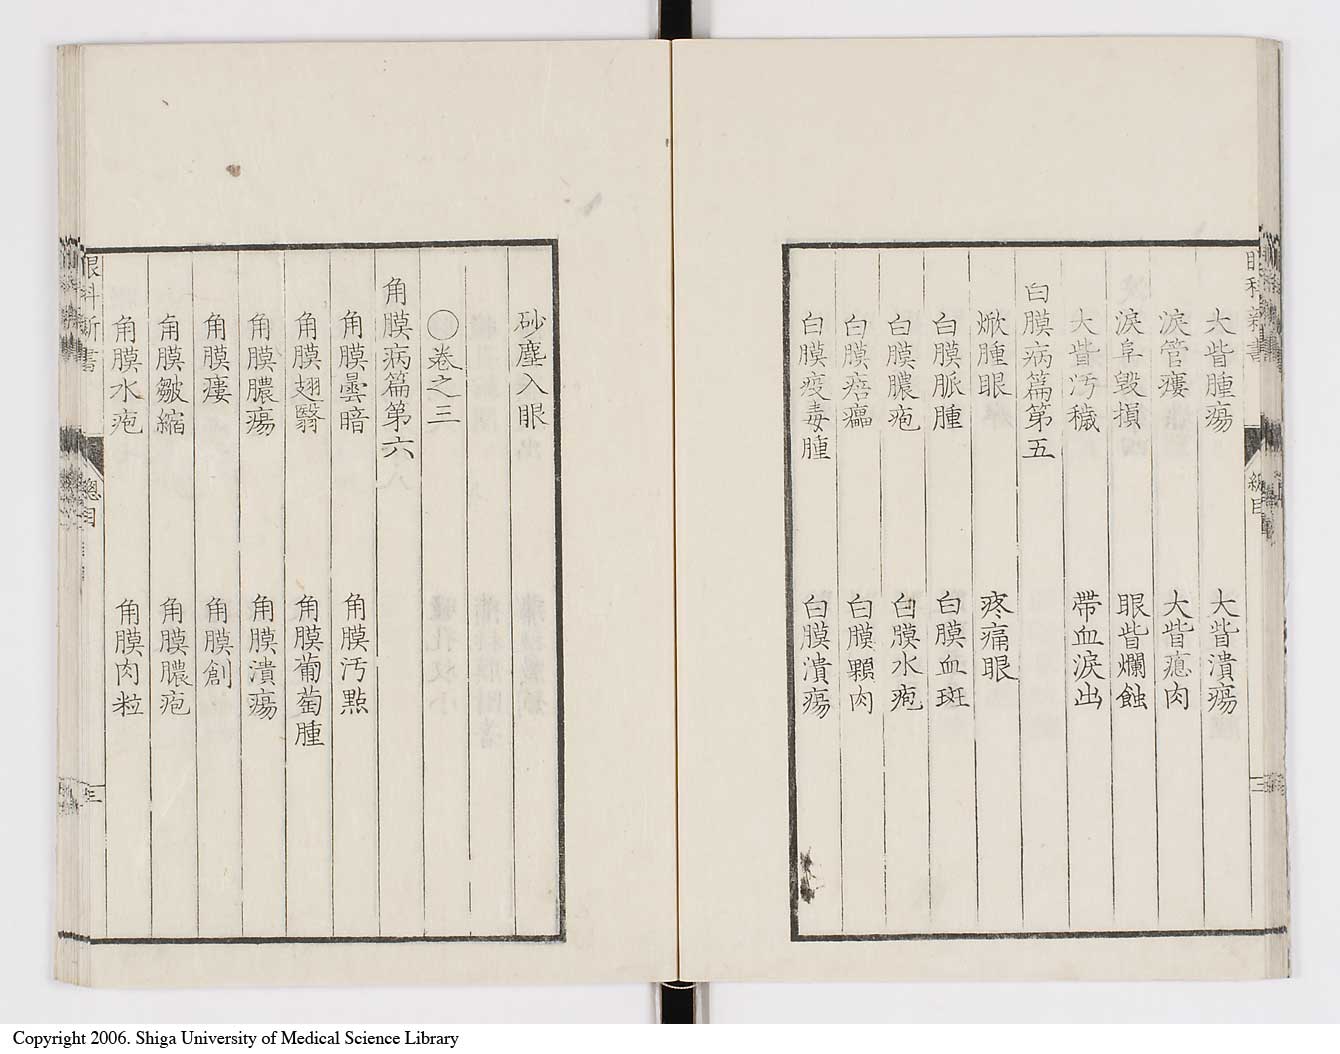 眼科新書
總目
三
大眥腫瘍
大眥潰瘍
淚管瘻
大眥瘜肉
淚阜毀損
眼眥爛蝕
大眥汚穢
帶血淚出
白膜病篇第五
焮腫眼
疼痛眼
白膜脈腫
白膜血斑
白膜膿疱
白膜水疱
白膜痞癟
白膜顆肉
白膜疫毒腫
白膜潰瘍
砂塵入眼
〇卷之三
角膜病篇第六
角膜曇暗
角膜汚點
角膜翅翳
角膜葡萄腫
角膜膿瘍
角膜潰瘍
角膜瘻
角膜創
角膜皺縮
角膜膿疱
角膜水疱
角膜肉粒
眼科新書
總目
三
Copyright 2006. Shiga University of Medical Science Library